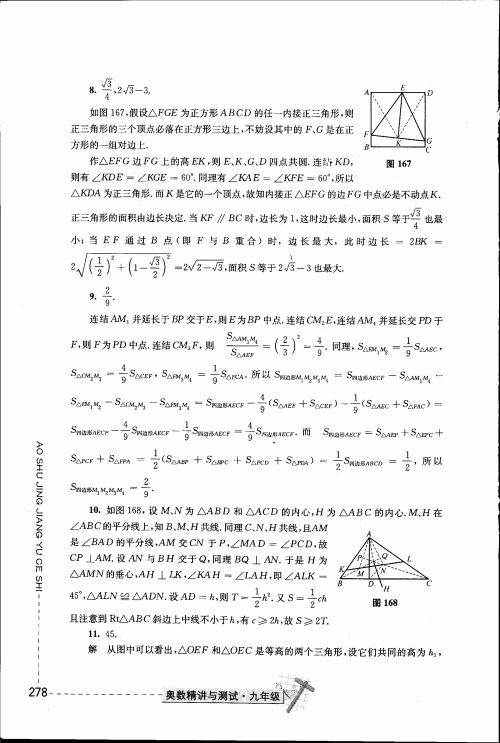 8. √3/4, 2√3−3.
如图167,假设△FGE 为正方形ABCD 的任一内接正三角形,则
正三角形的三个顶点必落在正方形三边上,不妨设其中的F、G是在正
方形的一组对边上.
作△EFG边FG上的高EK,则E、K、G、D四点共圆.连结KD,
则有∠KDE = ∠KGE = 60°.同理有∠KAE = ∠KFE = 60°,所以
△KDA为正三角形.而K是它的一个顶点,故知内接正△EFG的边FG中点必是不动点K.
A E D F G B K C
图 167
正三角形的面积由边长决定.当KF // BC时,边长为1,这时边长最小,面积S等于√3/4也最
小;当EF通过B点(即F与B重合)时,边长最大,此时边长 = 2BK =
2√((1/2)² + (1−√3/2)²) = 2√(2−√3),面积S等于2√3−3也最大.
9. 2/9.
连结AM₁并延长于BP交于E,则E为BP中点.连结CM₂E,连结AM₄并延长交PD于
F,则F为PD中点.连结CM₃F,则 S△AM₁M₄/S△AEF = (2/3)² = 4/9.同理,S△EM₁M₂ = 1/9 S△AEC,
S△CM₂M₃ = 4/9 S△CEF,S△FM₃M₄ = 1/9 S△FCA.所以S四边形M₁M₂M₃M₄ = S四边形AECF − S△AM₁M₄ −
S△EM₁M₂ − S△CM₂M₃ − S△FM₃M₄ = S四边形AECF − 4/9(S△AEF + S△CEF) − 1/9(S△AEC + S△FAC) =
S四边形AECF − 4/9 S四边形AECF − 1/9 S四边形AECF = 4/9 S四边形AECF.而 S四边形AECF = S△AEP + S△EPC +
S△PCF + S△FPA = 1/2(S△ABP + S△BPC + S△PCD + S△PDA) = 1/2 S四边形ABCD = 1/2,所以
S四边形M₁M₂M₃M₄ = 2/9.
10. 如图168,设M、N为△ABD和△ACD的内心,H为△ABC的内心.M、H在
∠ABC的平分线上,知B、M、H共线.同理C、N、H共线,且AM
是∠BAD的平分线,AM交CN于P,∠MAD = ∠PCD,故
CP⊥AM.设AN与BH交于Q,同理BQ⊥AN.于是H为
△AMN的垂心,AH⊥LK,∠KAH = ∠LAH,即∠ALK =
45°,△ALN≌△ADN.设AD = h,则T = 1/2 h².又S = 1/2 ch
且注意到Rt△ABC斜边上中线不小于h,有c≥2h,故S≥2T.
A P Q L K M N B D H C
图 168
11. 45.
解 从图中可以看出,△OEF和△OEC是等高的两个三角形,设它们共同的高为h₁,
AO SHU JING JIANG YU CE SHI
278
奥数精讲与测试·九年级